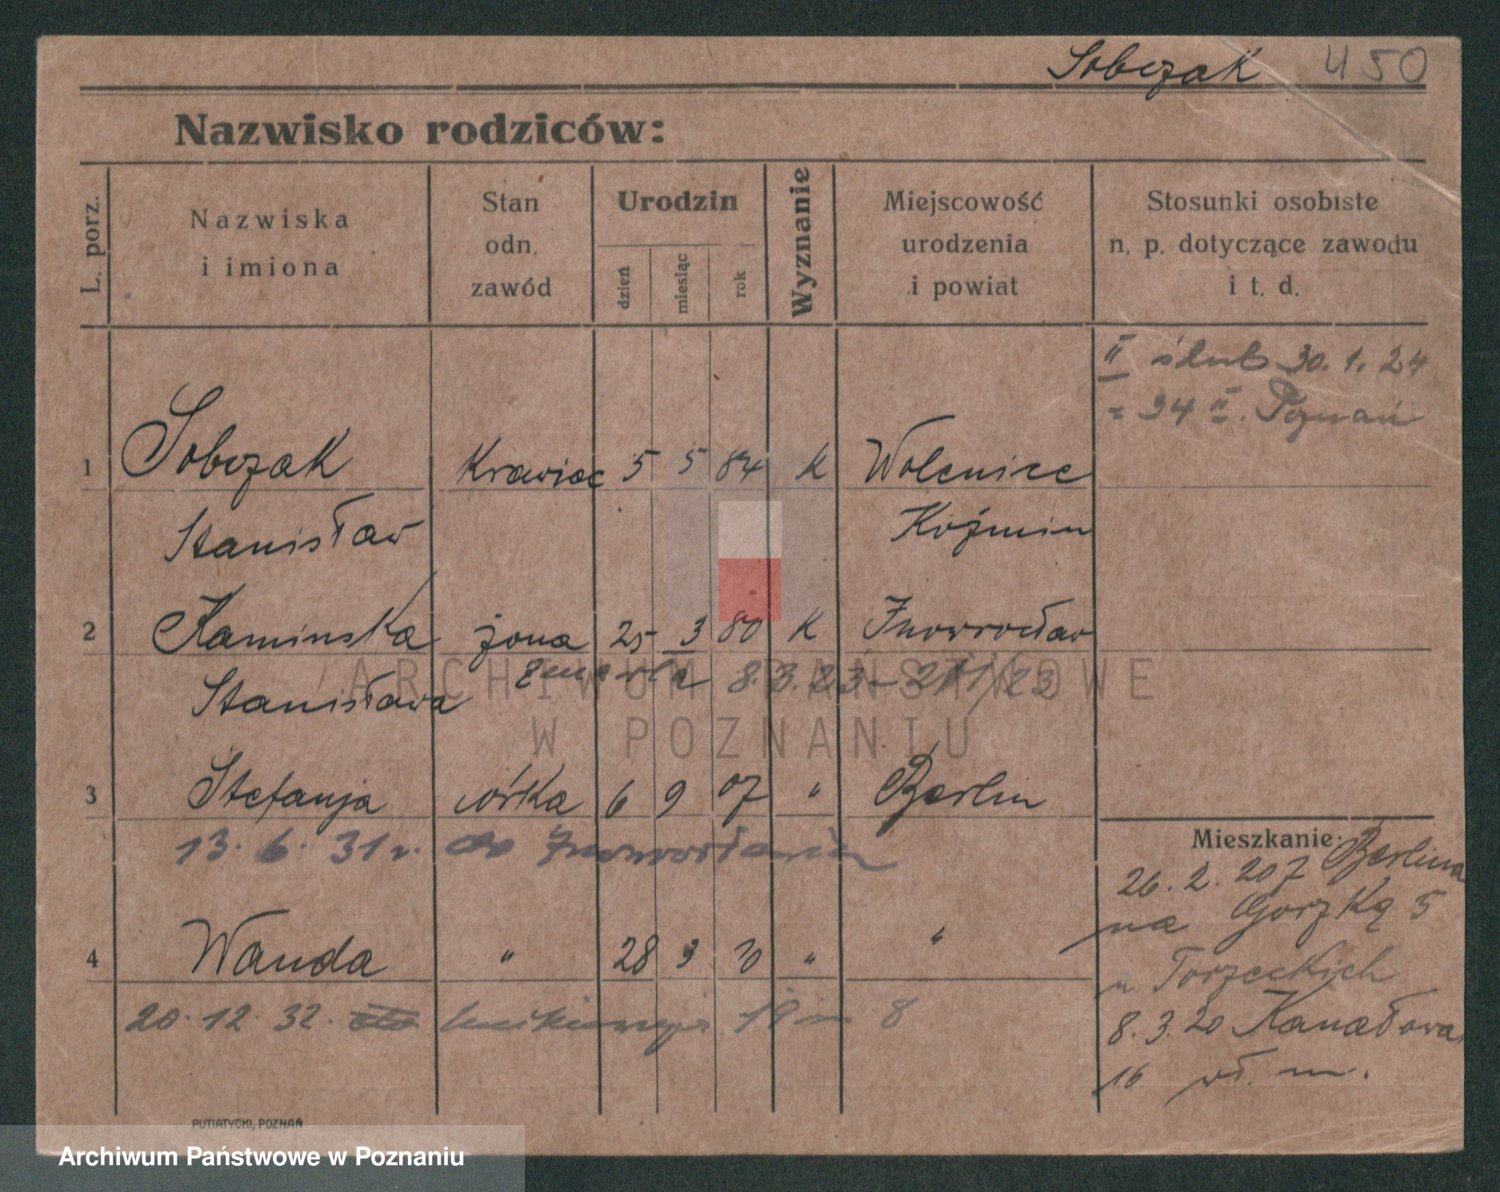 Sobczak 450
Nazwisko rodziców:
L. porz.
Nazwiska
i imiona
Stan
odn.
zawód
Urodzin
dzień
miesiąc
rok
Wyznanie
Miejscowość
urodzenia
i powiat
Stosunki osobiste
n. p. dotyczące zawodu
i t. d.
II ślub 30.1.24
= 94 II. Poznań
1 Sobczak Krawiec 5 5 84 K Wolenice
Stanisław Koźmin
2 Kaminska żona 25 3 80 K Inowrocław
Stanisława zmarła 8.3.23
3 Stefanja córka 6 9 07 " Berlin
13.6.31 r. do Inowrocławia
4 Wanda " 28 3 10 " "
20.12.32. 19 m 8
Mieszkanie:
26.2.20 z Berlina
na Gorzką 5
u Torzeckich
8.3.20 Kanałowa
16 wł. m.
PUTIATYCKI, POZNAŃ
ARCHIWUM PAŃSTWOWE
W POZNANIU
Archiwum Państwowe w Poznaniu